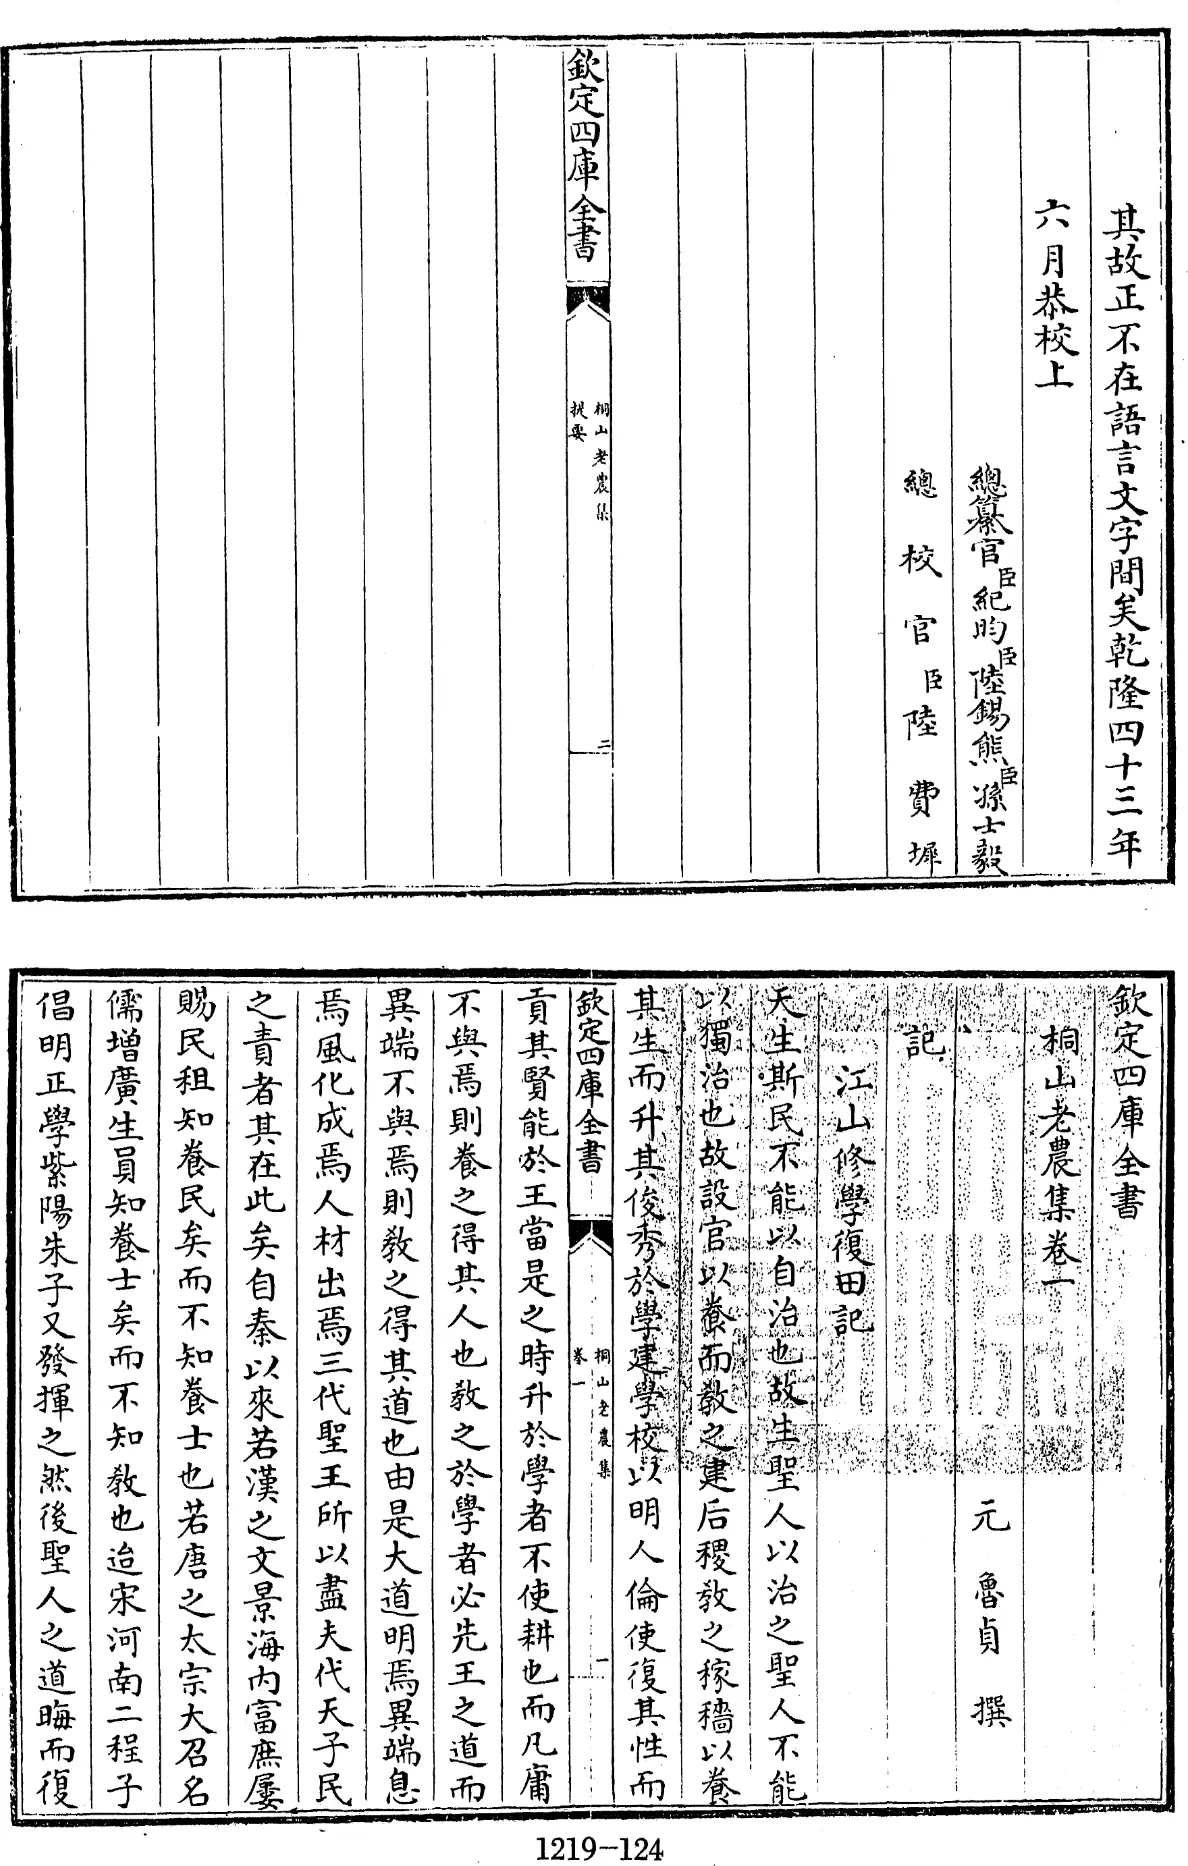 其故正不在語言文字間矣乾隆四十三年
六月恭校上
總纂官臣紀昀臣陸錫熊臣孫士毅
總校官臣陸費墀
欽定四庫全書
桐山老農集
提要
二
欽定四庫全書
桐山老農集卷一
元魯貞撰
記
江山修學復田記
天生斯民不能以自治也故生聖人以治之聖人不能
以獨治也故設官以養而敎之建后稷敎之稼穡以養
其生而升其俊秀於學建學校以明人倫使復其性而
欽定四庫全書
桐山老農集
卷一
一
貢其賢能於王當是之時升於學者不使耕也而凡庸
不與焉則養之得其人也敎之於學者必先王之道而
異端不與焉則敎之得其道也由是大道明焉異端息
焉風化成焉人材出焉三代聖王所以盡夫代天子民
之責者其在此矣自秦以來若漢之文景海内富庶屢
賜民租知養民矣而不知養士也若唐之太宗大召名
儒增廣生員知養士矣而不知敎也迨宋河南二程子
倡明正學紫陽朱子又發揮之然後聖人之道晦而復
1219-124